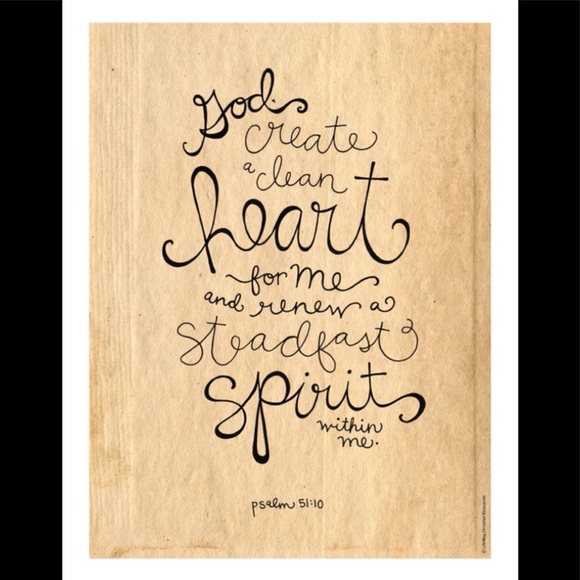 God.
create
a clean
heart
for me
and renew a
steadfast
spirit
within
me.
psalm 51:10
© LifeWay Christian Resources